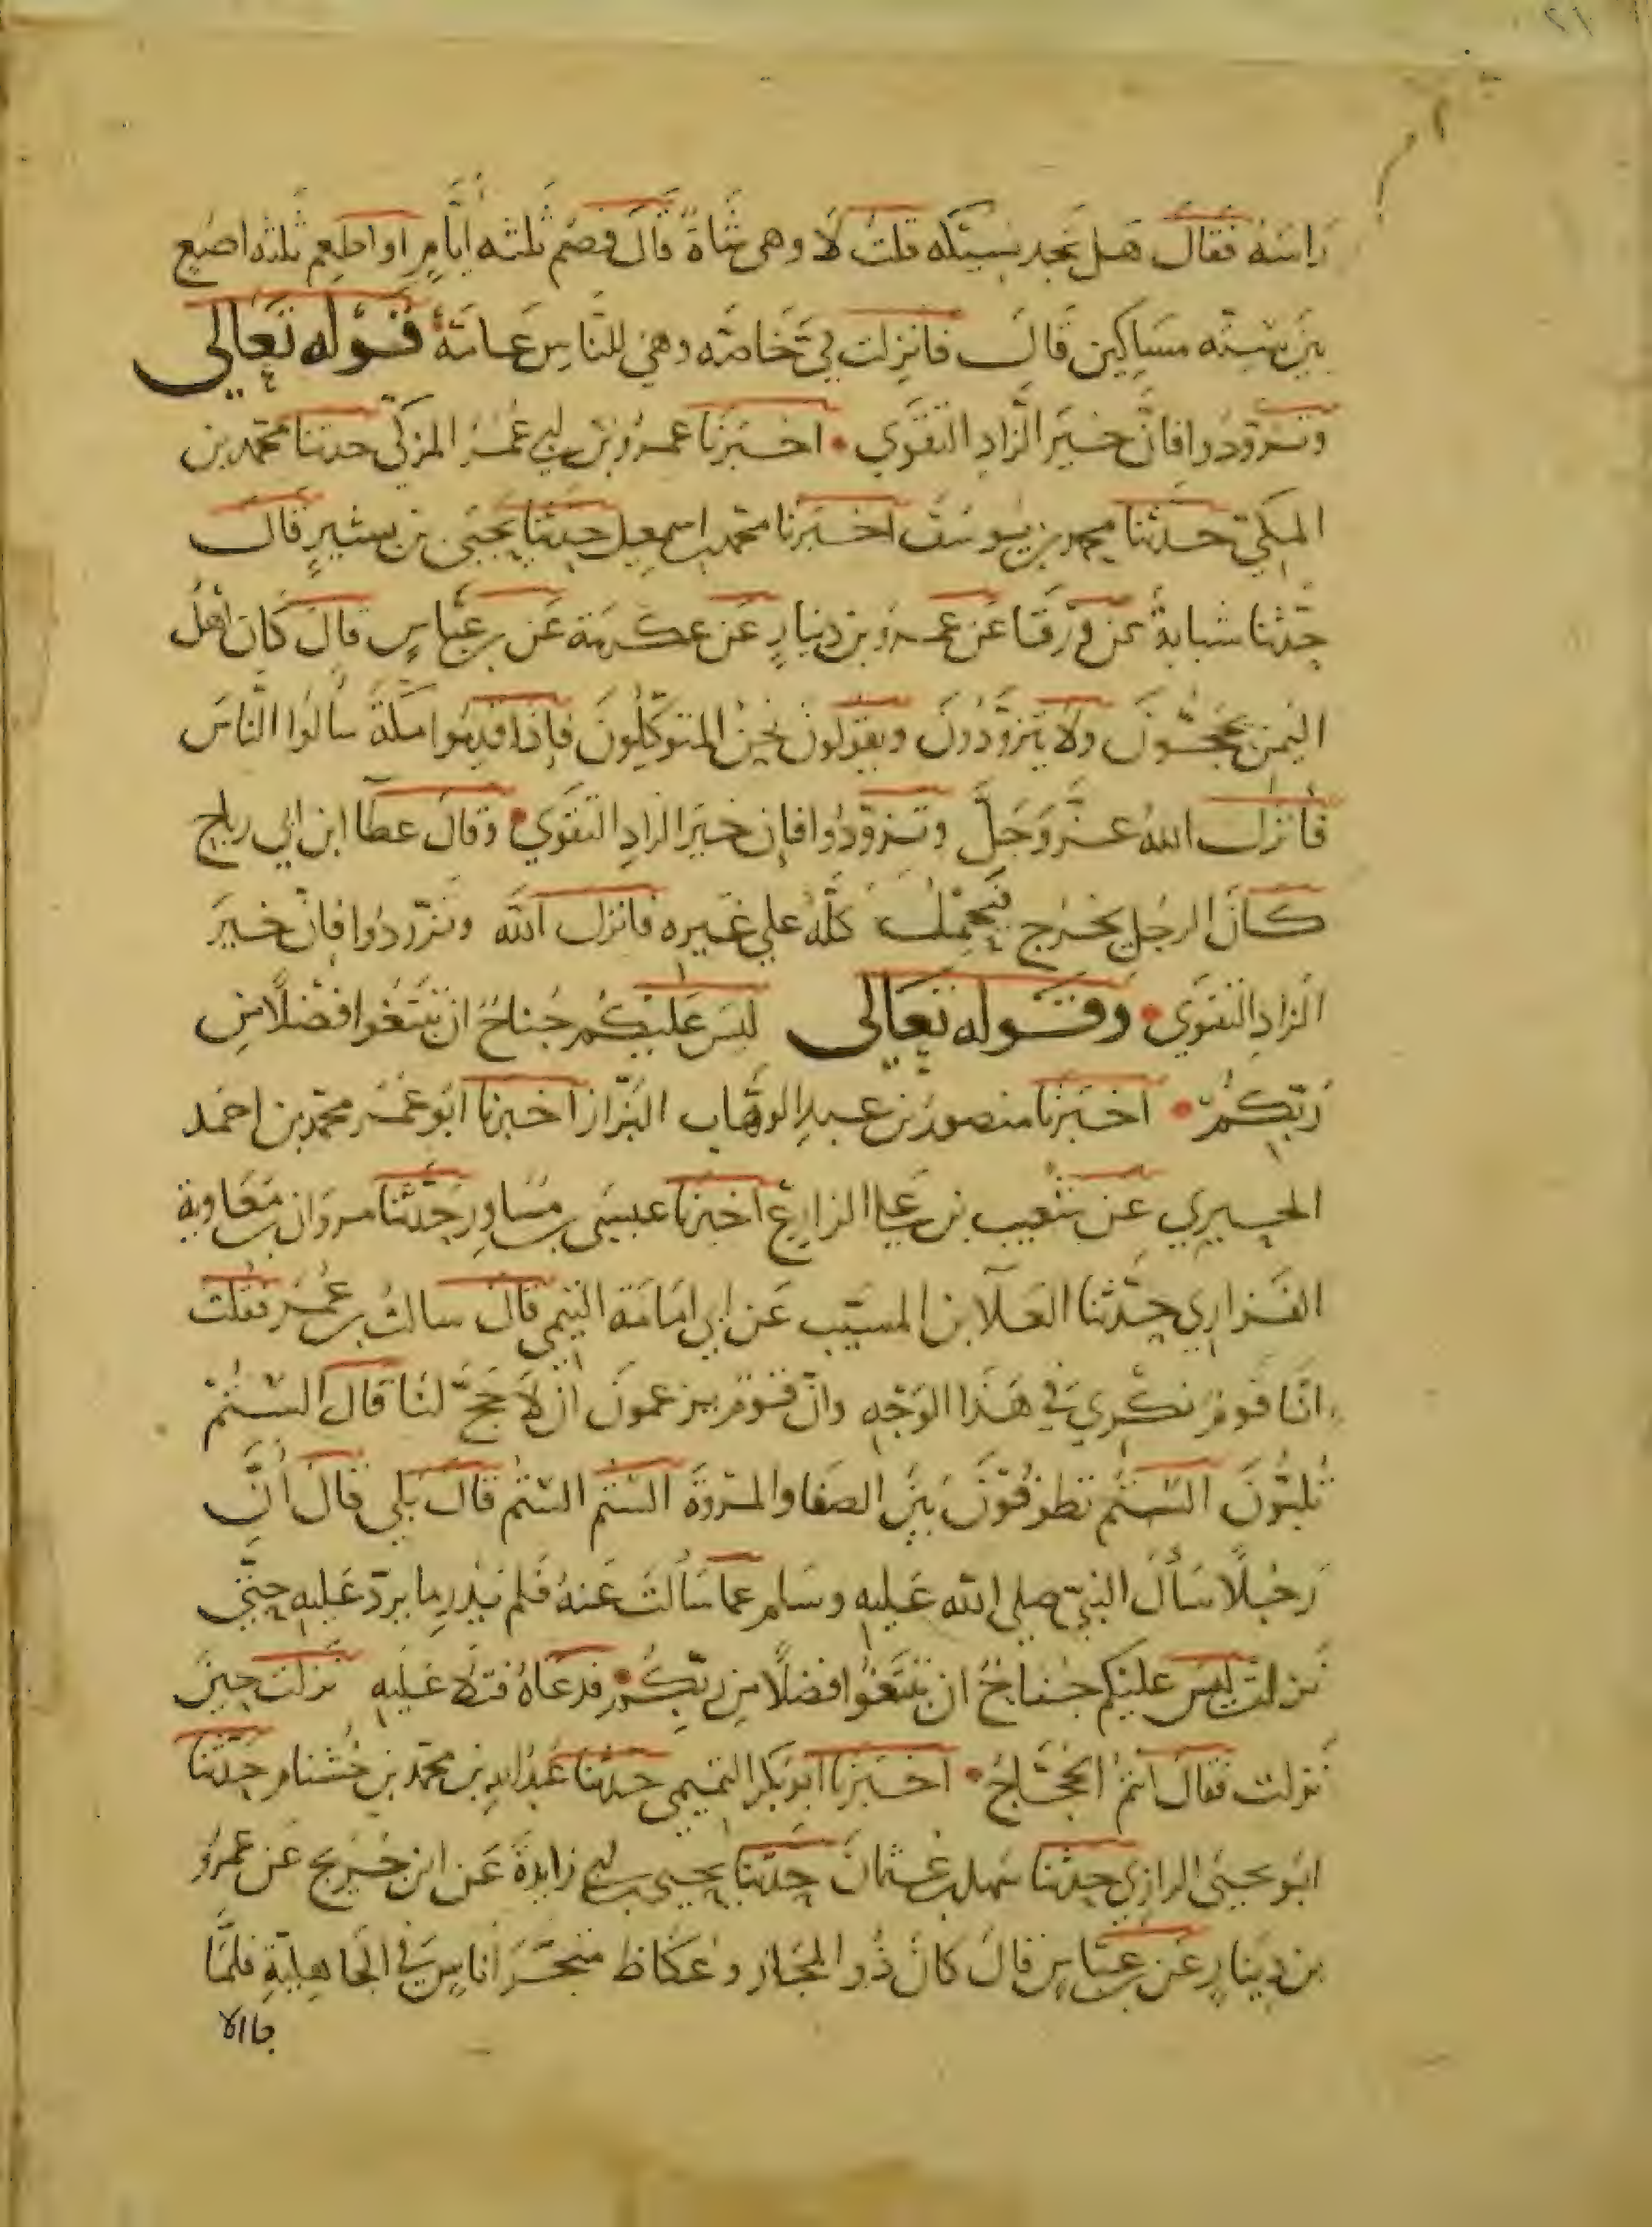 ٢١
راسَهُ فَقالَ هَل تجد نسيكه قلتُ لَا وهى شاةٌ قالَ فصُم ثلثه أيّامٍ او اطعِم ثلثه اصُعٍ
بَين ستّه مسَاكين قَالَ فانزلت فِيَّ خَاصّه وهي للنّاسِ عَامّةٌ قوله تعَالى
وتزوّدُوا فانّ خَيرَ الزادِ التقوَي • اخبَرنا عمرُو بن ابي عُمَر المزكّي حدثنا محمّد بن
المكي حَدثنا محمد بن يُوسُف اخبَرنا محمد بن اسمعيل حَدثنا يَحيَى بن بشيرٍ قال
حَدّثنا شبابةُ عن وَرقَا عَن عمرو بن دينارٍ عَن عكرمَة عَن بن عبّاسٍ قالَ كَان اهلُ
اليَمن يحجّونَ ولَا يتزوّدُونَ ويقولُونَ نحنُ المتوَكّلُونَ فإذا قدِمُوا مَكّةَ سألوُا النّاسَ
فأنزَلَ اللهُ عَزَّ وَجَلَّ وتَزوّدُوا فإن خيرَ الزادِ التقوَي • وقالَ عطآ ابن ابي رباح
كانَ الرجُل يخرج فيَحمِلُ كلّهُ علي غَيره فانزل اللّه وتزوّدُوا فانّ خيرَ
الزادِ التقوَي • وقَوله تعَالى ليسَ عَليكُم جُناحٌ ان تَبتَغوا فضلًا مِن
رَبّكمُ • اخبَرنا منصورُ بن عبدِ الوهّاب البزّاز اخبرنا ابُو عَمرو محمّد بن احمَد
الحيري عَن شُعَيب بن عَلي الزارع اخبرنا عيسَى بن مسَاورٍ حَدّثنا مروَان بن مَعَاوية
الفَزاري حَدّثنا العَلآ بن المسيّب عَن ابي امَامَة التيمي قالَ سالتُ بن عُمَر فقلت
انّا قومٌ نكْري في هَذا الوَجهِ وانّ قومًا يزعمُونَ ان لَا حَجّ لنَا قالَ الَستُمْ
تُلبّونَ الَستُم تطوفُونَ بَينَ الصَفا والمروَة الَستُم الَستُم قالَ بَلي قالَ انَّ
رَجُلًا سَأل النبيّ صلي اللّه عَليهِ وسَلم عما سَألتَ عَنهُ فَلم يَدْرِ ما يردّ عَليهِ حتّى
نَزلت ليسَ عليكم جناحٌ ان تبتغوا فضلًا مِن رَبّكُم • فدعَاهُ فتلا عَليهِ نزلت حينَ
نَزلت فقالَ انتمُ الحجّاجُ • اخبَرنا ابو بَكر التميمي حَدثنا عَبدُ اللهِ بن محمّد بن خُشنام حَدّثنا
ابو يحيَى الرازي حدثنا سَهل بن عُثمانَ حدّثنا يحيَى بن ابي زَايدةَ عَن ابن جُريجٍ عَن عمرٍو
بن دِينارٍ عَن بن عبّاسٍ قالَ كَانَ ذُو المجَاز وعُكَاظ متجَرَ ناسٍ في الجَاهِليّةِ فلمّا
جا الا